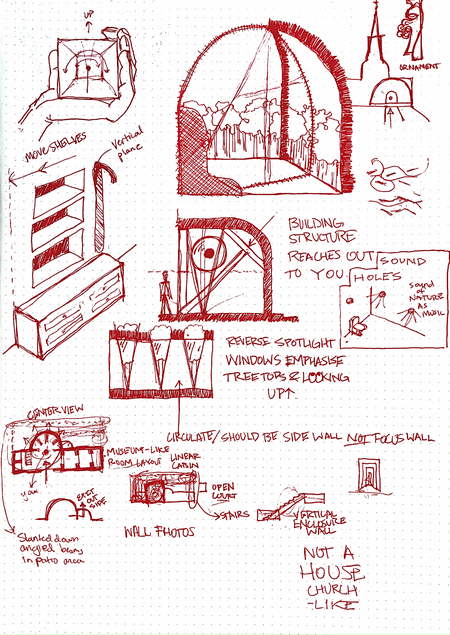 UP
ORNAMENT
MOVE SHELVES
Vertical
plane
BUILDING
STRUCTURE
REACHES OUT
TO YOU.
SOUND
HOLES
sound
of
NATURE
AS
MUSIC
REVERSE SPOTLIGHT
WINDOWS EMPHASISE
TREETOPS & LOOKING
UP↑.
CIRCULATE/SHOULD BE SIDE WALL NOT FOCUS WALL
CENTER VIEW
MUSEUM-LIKE
ROOM LAYOUT
LINEAR
CABIN
you
OPEN
COURT
OUT
SIDE
STAIRS
VERTICAL
ENCLOSURE
WALL
WALL PHOTOS
Slanted down
angled beams
in patio area
NOT A
HOUSE
CHURCH
-LIKE